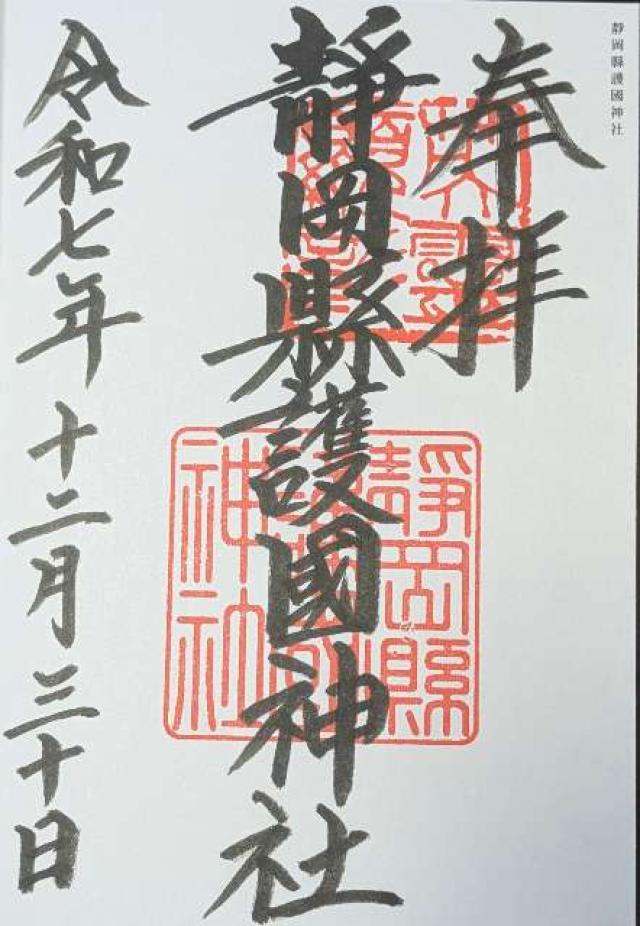 靜岡縣護國神社
奉拝
靜岡縣護國神社
令和七年十二月三十日
靜岡縣
神社